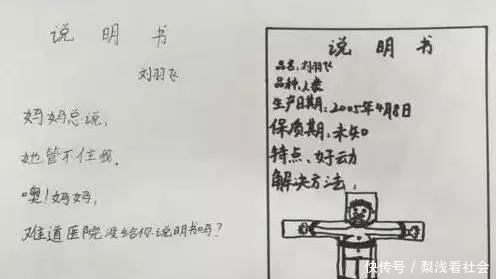 说明书
刘羽飞
妈妈总说,
她管不住我.
噢!妈妈,
难道医院没给你说明书吗?
说明书
品名:刘羽飞
品种:人类
生产日期:2005年4月8日
保质期:未知
特点:好动
解决方法:
快传号/梨浅看社会